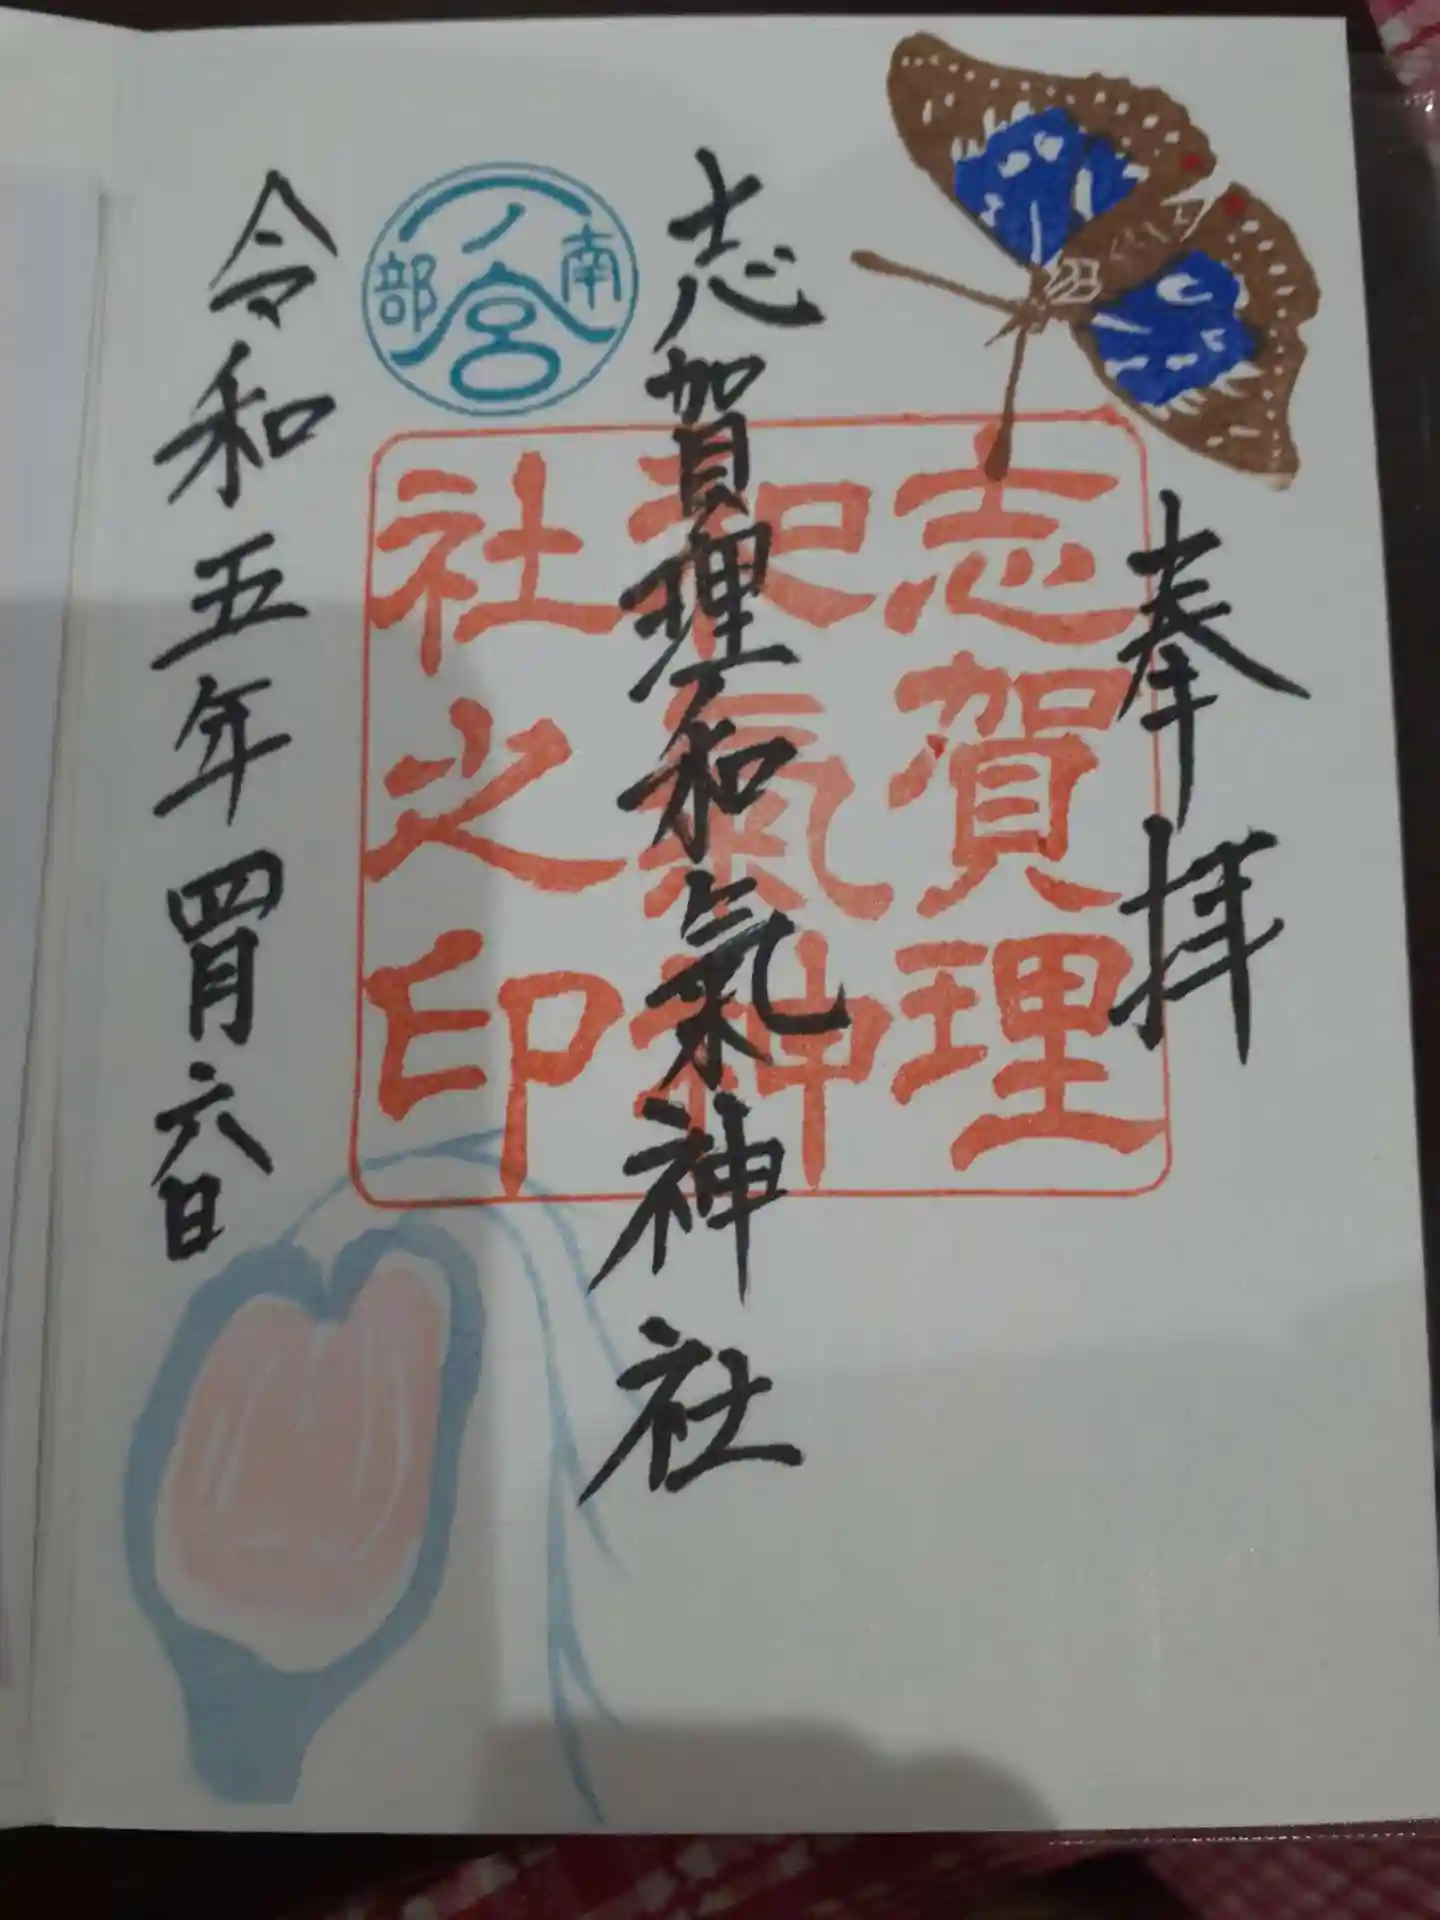 奉拝
志賀理和氣神社
志賀理
和氣神
社之印
南部
一ノ宮
令和五年四月六日